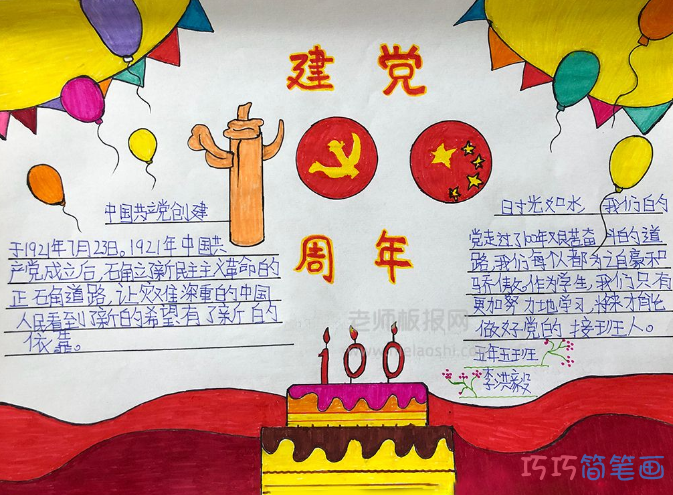 建党
周年
中国共产党创建
于1921年7月23日。1921年中国共
产党成立后,石角立了新民主主义革命的
正石角道路,让灾难深重的中国
人民看到了新的希望,有了新的
依靠。
日寸光如水,我们的
党走过了100年艰苦奋斗的道
路,我们每个人都为之自豪和
骄傲。作为学生,我们只有
更加努力地学习,将来才能
做好党的接班人。
五年五班
李洪毅
100
老师板报网
巧巧简笔画